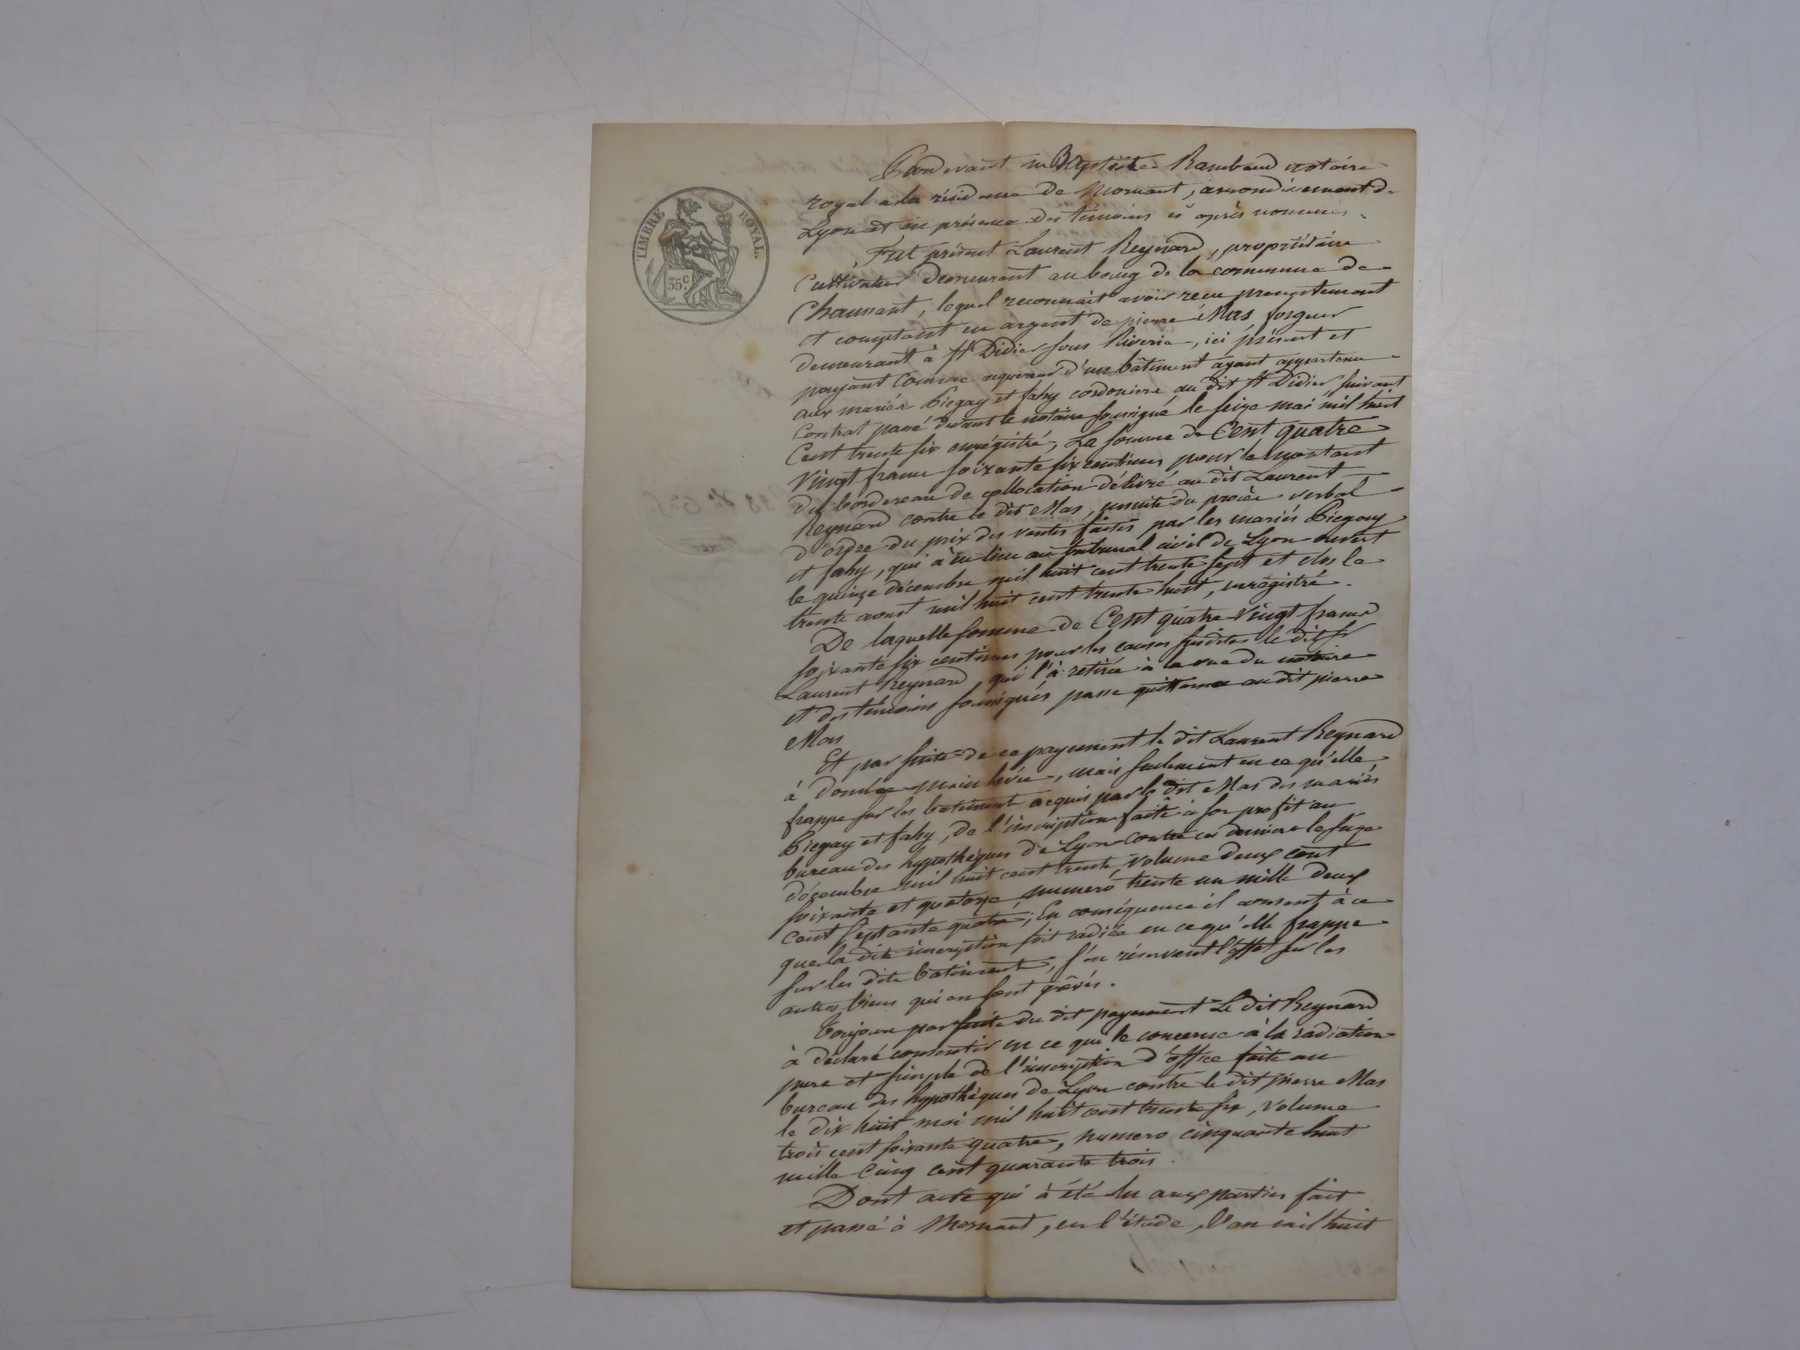 TIMBRE ROYAL.
35 c.
Pardevant me Baptiste Rambaud notaire
royal a la résidence de Mornant, arrondissement de
Lyon et en présence des témoins ci après nommés.
Fut présent Laurent Reynard, propriétaire
Cultivateur demeurant au bourg de la commune de
Chaussant, lequel reconnait avoir reçu presentement
et comptant en argent de pierre Mas forgeur
demeurant à St Didier sous Riverie, ici présent et
payant comme acquereur d'un bâtiment ayant appartenu
aux mariés Piegay et fahy cordonier au dit St Didier suivant
Contrat passé devant le notaire soussigné le seize mai mil huit
Cent trente six enregistré, La somme de Cent quatre
Vingt francs soixante six centimes pour le montant
du bordereau de collocation délivré au dit Laurent
Reynard contre le dit Mas, ensuite du procès verbal
d'ordre du prix des ventes faites par les mariés Piegay
et fahy, qui à eu lieu au tribunal civil de Lyon ouvert
le quinze décembre mil huit cent trente sept et clos le
trente aoust mil huit cent trente huit, enregistré.
De laquelle somme de Cent quatre Vingt francs
soixante six centimes pour les causes susdites le dit sr
Laurent Reynard, qui l'à retirée à la vue du notaire
et des témoins soussignés passe quittance au dit pierre
Mas
Et par suite de ce payement le dit Laurent Reynard
à donnée main levée, mais seulement en ce qu'elle
frappe sur les batiment acquis par le dit Mas des mariés
Piegay et fahy, de l'inscription faite à son profit au
bureau des hypothèques de Lyon contre ces derniers le seize
décembre mil huit cent trente, volume deux cent
soixante et quatorze, numero trente un mille deux
cent septante quatre; En conséquence il consent à ce
que la dite inscription soit radiée en ce qu'elle frappe
sur les dits batiment, s'en réservant l'effet sur les
autres biens qui en sont grévés.
Toujours par suite du dit payement Le dit Reynard
à déclaré consentir en ce qui le concerne à la radiation
pure et simple de l'inscription d'office faite au
bureau des hypothèques de Lyon contre le dit pierre Mas
le dix huit mai mil huit cent trente six, volume
trois cent soixante quatre, numero cinquante huit
mille cinq cent quarante trois.
Dont acte qui à été lu aux parties fait
et passé à Mornant, en l'étude, l'an mil huit